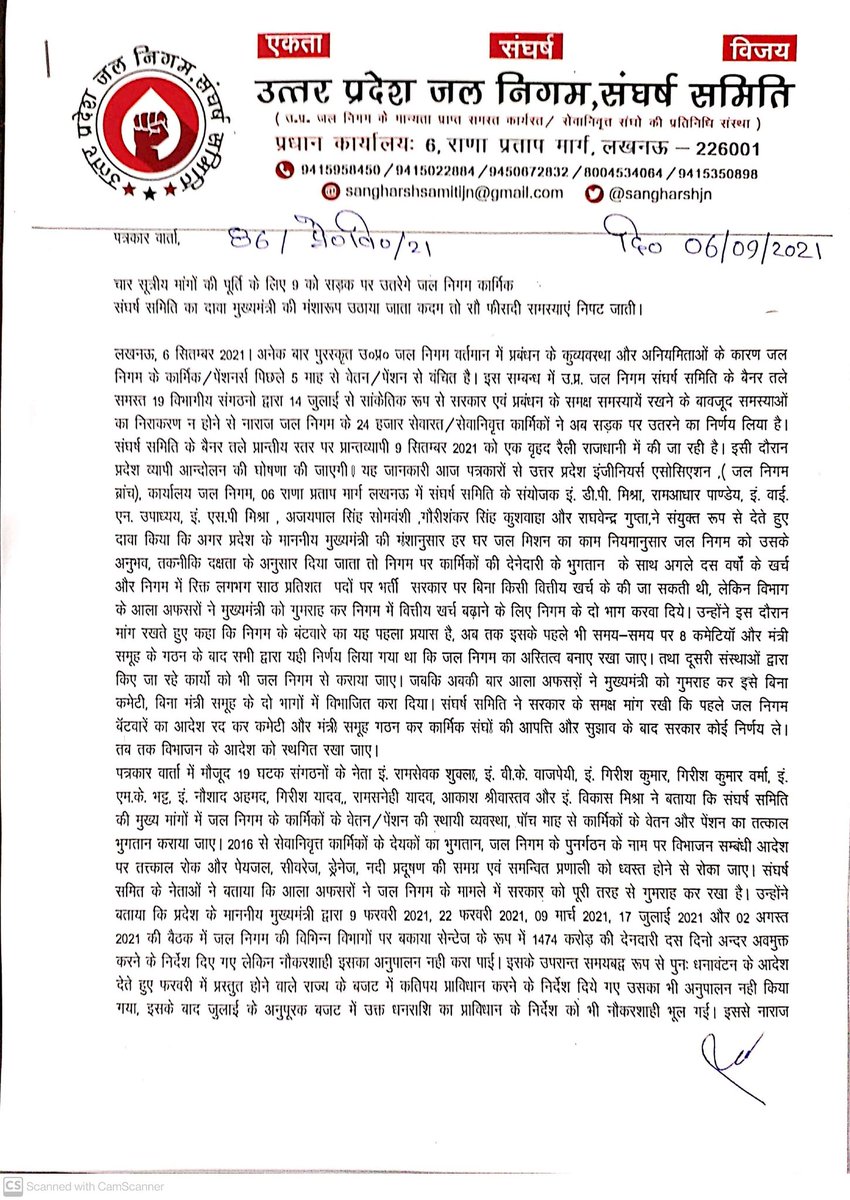 एकता संघर्ष विजय
उत्तर प्रदेश जल निगम,संघर्ष समिति
उत्तर प्रदेश जल निगम,संघर्ष समिति
( उ.प्र. जल निगम के मान्यता प्राप्त समस्त कार्यरत/ सेवानिवृत्त संघो की प्रतिनिधि संस्था )
प्रधान कार्यालयः 6, राणा प्रताप मार्ग, लखनऊ – 226001
9415958450 /9415022884 /9450672832 /8004534064 /9415350898
sangharshsamitijn@gmail.com @sangharshjn
पत्रकार वार्ता, 86/ प्रे०वि०/21 दि० 06/09/2021
चार सूत्रीय मांगों की पूर्ति के लिए 9 को सड़क पर उतरेगे जल निगम कार्मिक
संघर्ष समिति का दावा मुख्यमंत्री की मंशारूप उठाया जाता कदम तो सौ फीरादी समस्याएं निपट जाती।
लखनऊ, 6 सितम्बर 2021। अनेक बार पुरस्कृत उ०प्र० जल निगम वर्तमान में प्रबंधन के कुव्यवस्था और अनियमिताओं के कारण जल
निगम के कार्मिक/पेंशनर्स पिछले 5 माह से वेतन/पेंशन से वंचित है। इस सम्बन्ध में उ.प्र. जल निगम संघर्ष समिति के बैनर तले
समस्त 19 विभागीय संगठनो द्वारा 14 जुलाई से सांकेतिक रूप से सरकार एवं प्रबंधन के समक्ष समस्यायें रखने के बावजूद समस्याओं
का निराकरण न होने से नाराज जल निगम के 24 हजार सेवारत/सेवानिवृत्त कार्मिकों ने अब सड़क पर उतरने का निर्णय लिया है।
संघर्ष समिति के बैनर तले प्रान्तीय स्तर पर प्रान्तव्यापी 9 सितम्बर 2021 को एक वृहद रैली राजधानी में की जा रही है। इसी दौरान
प्रदेश व्यापी आन्दोलन की घोषणा की जाएगी। यह जानकारी आज पत्रकारों से उत्तर प्रदेश इंजीनियर्स एसोसिएशन ,( जल निगम
ब्रांच), कार्यालय जल निगम, 06 राणा प्रताप मार्ग लखनऊ में संघर्ष समिति के संयोजक इं. डी.पी. मिश्रा, रामआधार पाण्डेय, इं. वाई.
एन. उपाध्यय, इं. एस.पी मिश्रा , अजयपाल सिंह सोमवंशी ,गौरीशंकर सिंह कुशवाहा और राघवेन्द्र गुप्ता,ने संयुक्त रूप से देते हुए
दावा किया कि अगर प्रदेश के माननीय मुख्यमंत्री की मंशानुसार हर घर जल मिशन का काम नियमानुसार जल निगम को उसके
अनुभव, तकनीकि दक्षता के अनुसार दिया जाता तो निगम पर कार्मिकों की देनेदारी के भुगतान के साथ अगले दस वर्षो के खर्च
और निगम में रिक्त लगभग साठ प्रतिशत पदों पर भर्ती सरकार पर बिना किसी वित्तीय खर्च के की जा सकती थी, लेकिन विभाग
के आला अफसरों ने मुख्यमंत्री को गुमराह कर निगम में वित्तीय खर्च बढ़ाने के लिए निगम के दो भाग करवा दिये। उन्होंने इस दौरान
मांग रखते हुए कहा कि निगम के बंटवारे का यह पहला प्रयास है, अब तक इसके पहले भी समय–समय पर 8 कमेटियॉ और मंत्री
समूह के गठन के बाद सभी द्वारा यही निर्णय लिया गया था कि जल निगम का अस्तित्व बनाए रखा जाए। तथा दूसरी संस्थाओं द्वारा
किए जा रहे कार्यो को भी जल निगम से कराया जाए। जबकि अबकी बार आला अफसरों ने मुख्यमंत्री को गुमराह कर इसे बिना
कमेटी, बिना मंत्री समूह के दो भागों में विभाजित करा दिया। संघर्ष समिति ने सरकार के समक्ष मांग रखी कि पहले जल निगम
बॅटवारें का आदेश रद कर कमेटी और मंत्री समूह गठन कर कार्मिक संघों की आपत्ति और सुझाव के बाद सरकार कोई निर्णय ले।
तब तक विभाजन के आदेश को स्थगित रखा जाए।
पत्रकार वार्ता में मौजूद 19 घटक संगठनों के नेता इं. रामसेवक शुक्ला, इं. वी.के. वाजपेयी, इं. गिरीश कुमार, गिरीश कुमार वर्मा, इं.
एम.के. भट्ट, इं. नौशाद अहमद, गिरीश यादव,, रामसनेही यादव, आकाश श्रीवास्तव और इं. विकास मिश्रा ने बताया कि संघर्ष समिति
की मुख्य मांगों में जल निगम के कार्मिकों के वेतन/पेंशन की स्थायी व्यवस्था, पॉच माह से कार्मिकों के वेतन और पेंशन का तत्काल
भुगतान कराया जाए। 2016 से सेवानिवृत्त कार्मिकों के देयकों का भुगतान, जल निगम के पुनर्गठन के नाम पर विभाजन सम्बंधी आदेश
पर तत्त्काल रोक और पेयजल, सीवरेज, ड्रेनेज, नदी प्रदूषण की समग्र एवं समन्वित प्रणाली को ध्वस्त होने से रोका जाए। संघर्ष
समित के नेताओं ने बताया कि आला अफसरों ने जल निगम के मामले में सरकार को पूरी तरह से गुमराह कर रखा है। उन्होंने
बताया कि प्रदेश के माननीय मुख्यमंत्री द्वारा 9 फरवरी 2021, 22 फरवरी 2021, 09 मार्च 2021, 17 जुलाई 2021 और 02 अगस्त
2021 की बैठक में जल निगम की विभिन्न विभागों पर बकाया सेन्टेज के रूप में 1474 करोड़ की देनदारी दस दिनो अन्दर अवमुक्त
करने के निर्देश दिए गए लेकिन नौकरशाही इसका अनुपालन नही करा पाई। इसके उपरान्त समयबद्व रूप से पुनः धनावंटन के आदेश
देते हुए फरवरी में प्रस्तुत होने वाले राज्य के बजट में कतिपय प्राविधान करने के निर्देश दिये गए उसका भी अनुपालन नही किया
गया, इसके बाद जुलाई के अनुपूरक बजट में उक्त धनराशि का प्राविधान के निर्देश को भी नौकरशाही भूल गई। इससे नाराज
CS Scanned with CamScanner